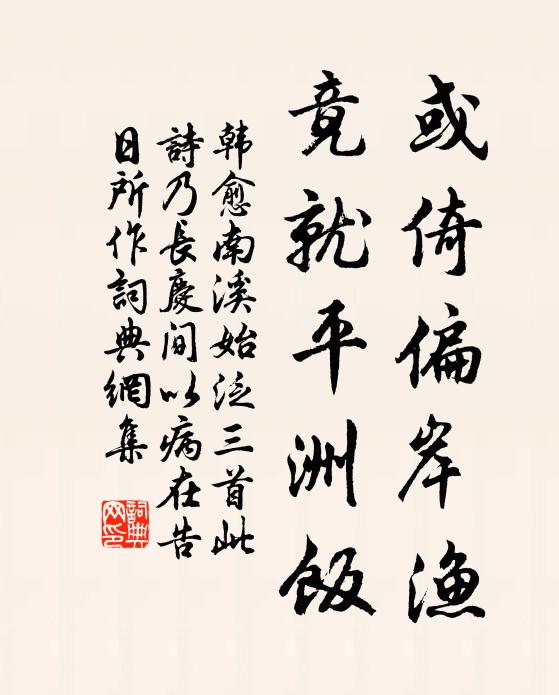 或倚偏岸漁
竟就平洲飯
韩愈南溪始泛三首此
詩乃長慶间以病在告
日所作詞典網集
詞典網印